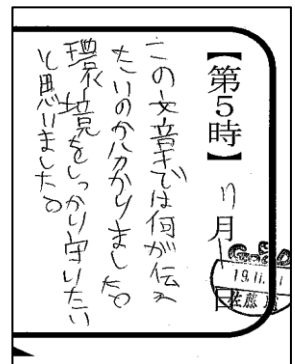 【第5時】 11月 日
19.11.
佐藤
この文章では何が伝え
たいのか分かりました。
環境をしっかり守りたい
と思いました。